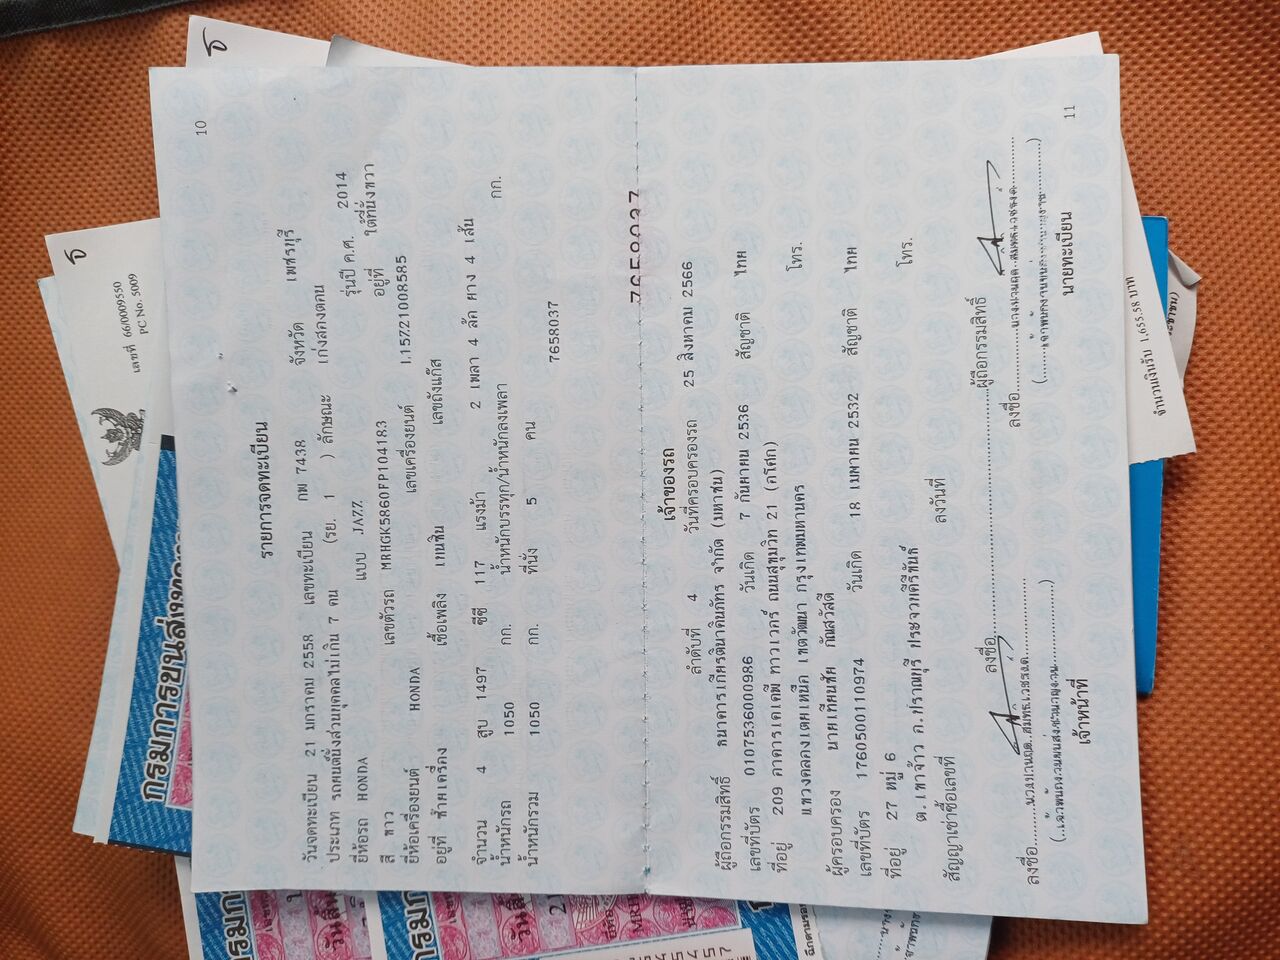 10
รายการจดทะเบียน
วันจดทะเบียน 21 มกราคม 2558 เลขทะเบียน กพ 7438 จังหวัด เพชรบุรี
ประเภท รถยนต์นั่งส่วนบุคคลไม่เกิน 7 คน (รย. 1 ) ลักษณะ เก๋งสองตอน
ยี่ห้อรถ HONDA แบบ JAZZ รุ่นปี ค.ศ. 2014
สี ขาว เลขตัวรถ MRHGK5860FP104183 อยู่ที่ ใต้ที่นั่งขวา
ยี่ห้อเครื่องยนต์ HONDA เลขเครื่องยนต์ L15Z21008585
อยู่ที่ ซ้ายเครื่อง เชื้อเพลิง เบนซิน เลขถังแก๊ส
จำนวน 4 สูบ 1497 ซีซี 117 แรงม้า 2 เพลา 4 ล้อ ยาง 4 เส้น
น้ำหนักรถ 1050 กก. น้ำหนักบรรทุก/น้ำหนักลงเพลา กก.
น้ำหนักรวม 1050 กก. ที่นั่ง 5 คน
7658037
7658037
เจ้าของรถ
ลำดับที่ 4 วันที่ครอบครองรถ 25 สิงหาคม 2566
ผู้ถือกรรมสิทธิ์ ธนาคารเกียรตินาคินภัทร จำกัด (มหาชน)
เลขที่บัตร 0107536000986 วันเกิด 7 กันยายน 2536 สัญชาติ ไทย
ที่อยู่ 209 อาคารเคเคพี ทาวเวอร์ ถนนสุขุมวิท 21 (อโศก)
แขวงคลองเตยเหนือ เขตวัฒนา กรุงเทพมหานคร โทร.
ผู้ครอบครอง นายเทียนชัย กัณสวัสดิ์
เลขที่บัตร 1760500110974 วันเกิด 18 เมษายน 2532 สัญชาติ ไทย
ที่อยู่ 27 หมู่ 6
ต.เขาจ้าว อ.ปราณบุรี ประจวบคีรีขันธ์ โทร.
สัญญาเช่าซื้อเลขที่ ลงวันที่
ลงชื่อ ผู้ถือกรรมสิทธิ์
ลงชื่อ ลงชื่อ
เจ้าหน้าที่ นายทะเบียน
11
เลขที่ 66/0009550
PC No. 5009
กรมการขนส่งทางบก
จำนวนเงินรับ 1,655.58 บาท